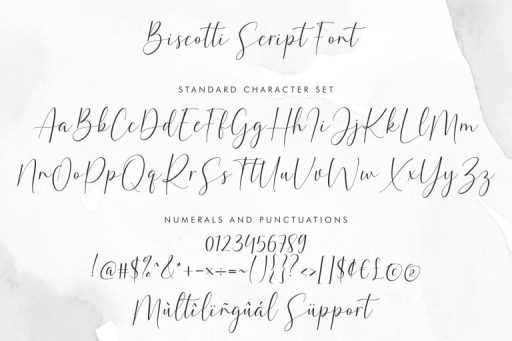 Biscotti Script Font
STANDARD CHARACTER SET
AaBbCcDdEeFfGgHhIiJjKkLlMm
NnOoPpQqRrSsTtUuVvWwXxYyZz
NUMERALS AND PUNCTUATIONS
0123456789
!@#$%^&*+-x÷=~(){}?<>[]|$¢€£©®
Mùltîlïñgûál Süpport